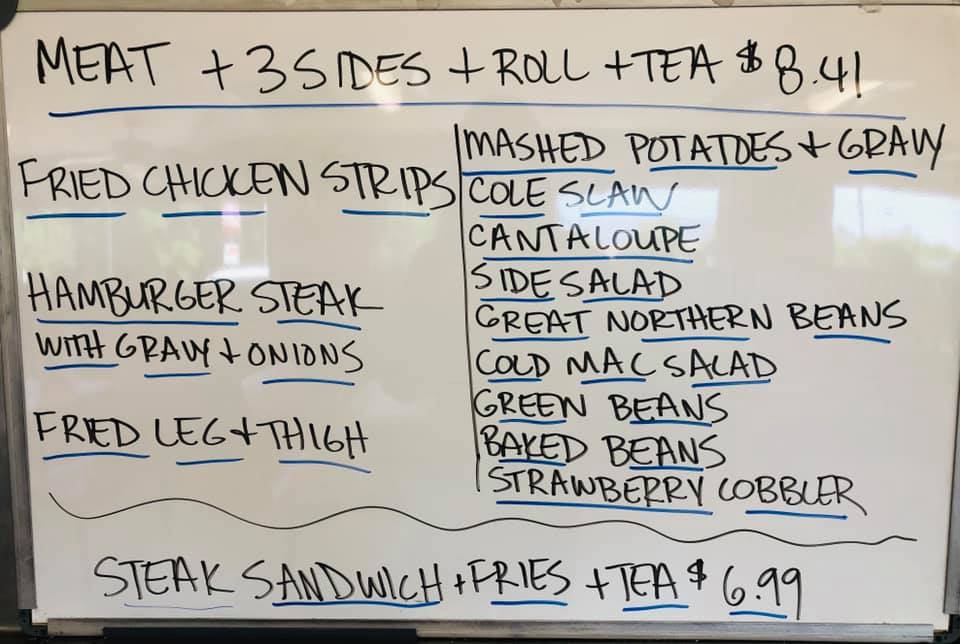 MEAT + 3 SIDES + ROLL + TEA $8.41
FRIED CHICKEN STRIPS
HAMBURGER STEAK
WITH GRAVY + ONIONS
FRIED LEG + THIGH
MASHED POTATOES + GRAVY
COLE SLAW
CANTALOUPE
SIDE SALAD
GREAT NORTHERN BEANS
COLD MAC SALAD
GREEN BEANS
BAKED BEANS
STRAWBERRY COBBLER
STEAK SANDWICH + FRIES + TEA $6.99